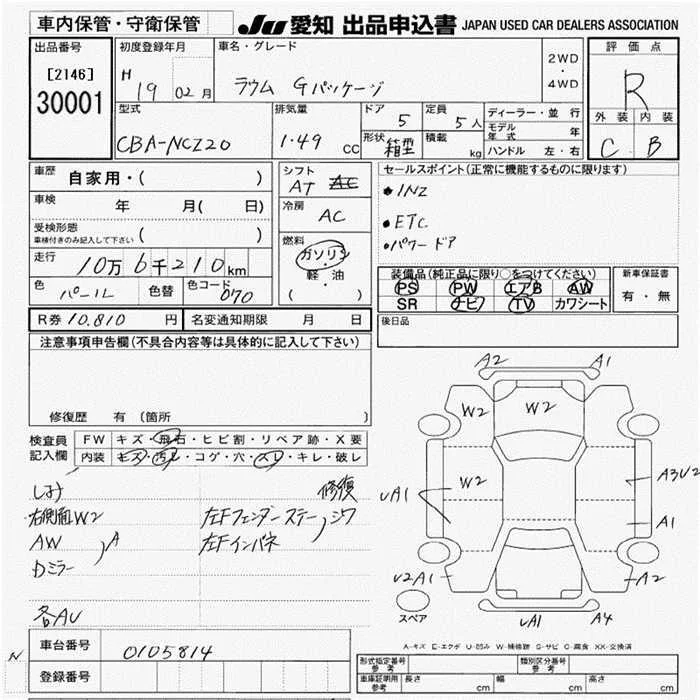 車内保管・守衛保管
JU 愛知 出品申込書 JAPAN USED CAR DEALERS ASSOCIATION
出品番号
[2146]
30001
初度登録年月
H 19 02月
車名・グレード
ラウム Gパッケージ
2WD
・
4WD
評価点
R
外装 内装
C B
型式
CBA-NCZ20
排気量
1.49 cc
ドア 5
形状 箱型
定員 5人
積載 kg
ディーラー・並行
モデル年式 年
ハンドル 左・右
車歴 自家用・( )
車検 年 月( 日)
受検形態
車検付きのみ記入して下さい ( )
走行 10万6千210km
色 パール 色替 色コード 070
シフト
AT AC
冷房
AC
燃料
ガソリン
・
軽・油
( )
セールスポイント(正常に機能するものに限ります)
• INZ
• ETC
• パワードア
装備品(純正品に限り○をつけてください)
PS PW エアB AW
SR ナビ TV カワシート
新車保証書
有・無
R券 10.810 円 名変通知期限 月 日
後日品
注意事項申告欄(不具合内容等は具体的に記入して下さい)
修復歴 有(箇所 )
検査員記入欄
FW キズ・飛石・ヒビ割・リペア跡・X要
内装 キズ・汚レ・コゲ・穴・スレ・キレ・破レ
しみ 修復
右側面W2 左Fフェンダーステー シワ
AW A 左Fインパネ
Dミラー
各AU
A2 A1
W2 W2
W2
UA1 A3U2
A1
U2A1 A2
スペア UA1 A4
A-キズ E-エクボ U-凹み W-補修跡 S-サビ C-腐食 XX-交換済
N
車台番号 0105814
登録番号
形式指定番号 参考
類別区分番号 参考
車庫証明用 参考 長さ cm 幅 cm 高さ cm